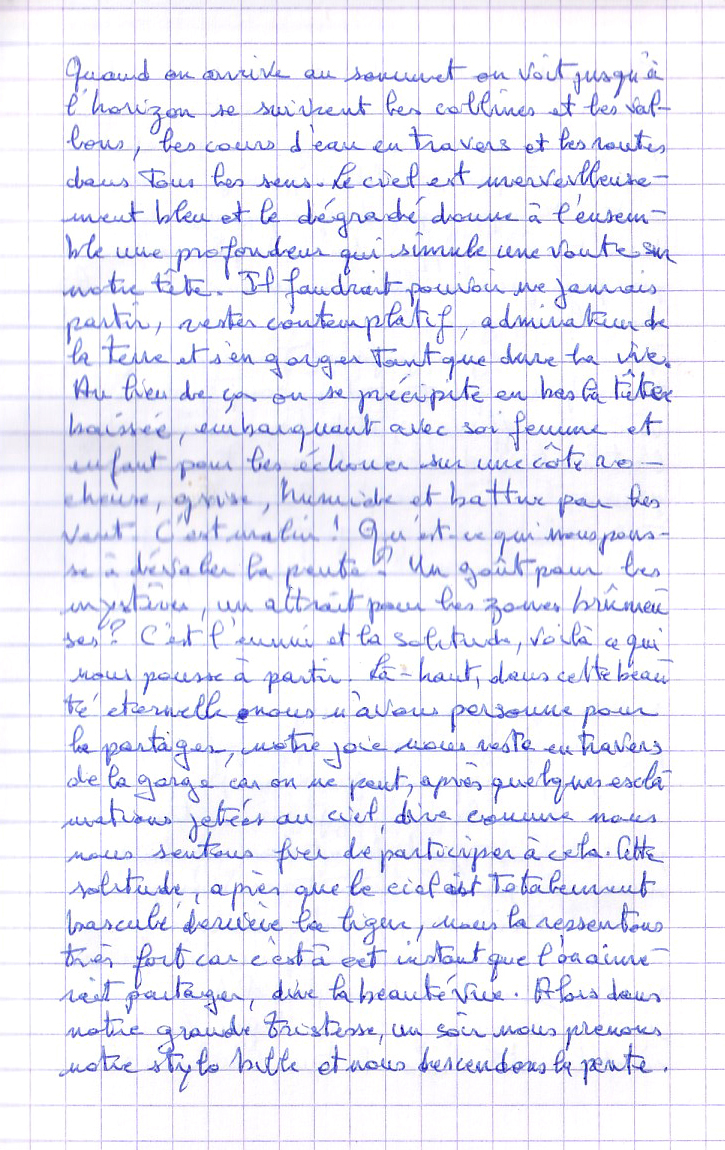 Quand on arrive au sommet on voit jusqu'à
l'horizon se suivrent les collines et les val-
lons, les cours d'eau en travers et les routes
dans tous les sens. Le ciel est merveilleuse-
ment bleu et le dégradé donne à l'ensem-
ble une profondeur qui simule une voute sur
notre tête. Il faudrait pouvoir ne jamais
partir, rester contemplatif, admirateur de
la terre et s'en gorger tant que dure la vie.
Au lieu de ça on se précipite en bas la tête
baissée, embarquant avec soi femme et
enfant pour les échouer sur une côte ro-
cheuse, grise, humide et battue par les
vent. C'est malin ! Qu'est-ce qui nous pous-
se à dévaler la pente ? Un goût pour les
mystères, un attrait pour les zones brûmeu
ses ? C'est l'ennui et la solitude, voilà ce qui
nous pousse à partir. Là-haut, dans cette beau
té éternelle nous n'avons personne pour
la partager, notre joie nous reste en travers
de la gorge car on ne peut, après quelques excla
mations jetées au ciel, dire comme nous
nous sentons fier de participer à cela. Cette
solitude, après que le ciel ait totalement
basculé derrière la ligne, nous la ressentons
très fort car c'est à cet instant que l'on aime-
rait partager, dire la beauté vue. Alors dans
notre grande tristesse, un soir nous prenons
notre stylo bille et nous descendons la pente.